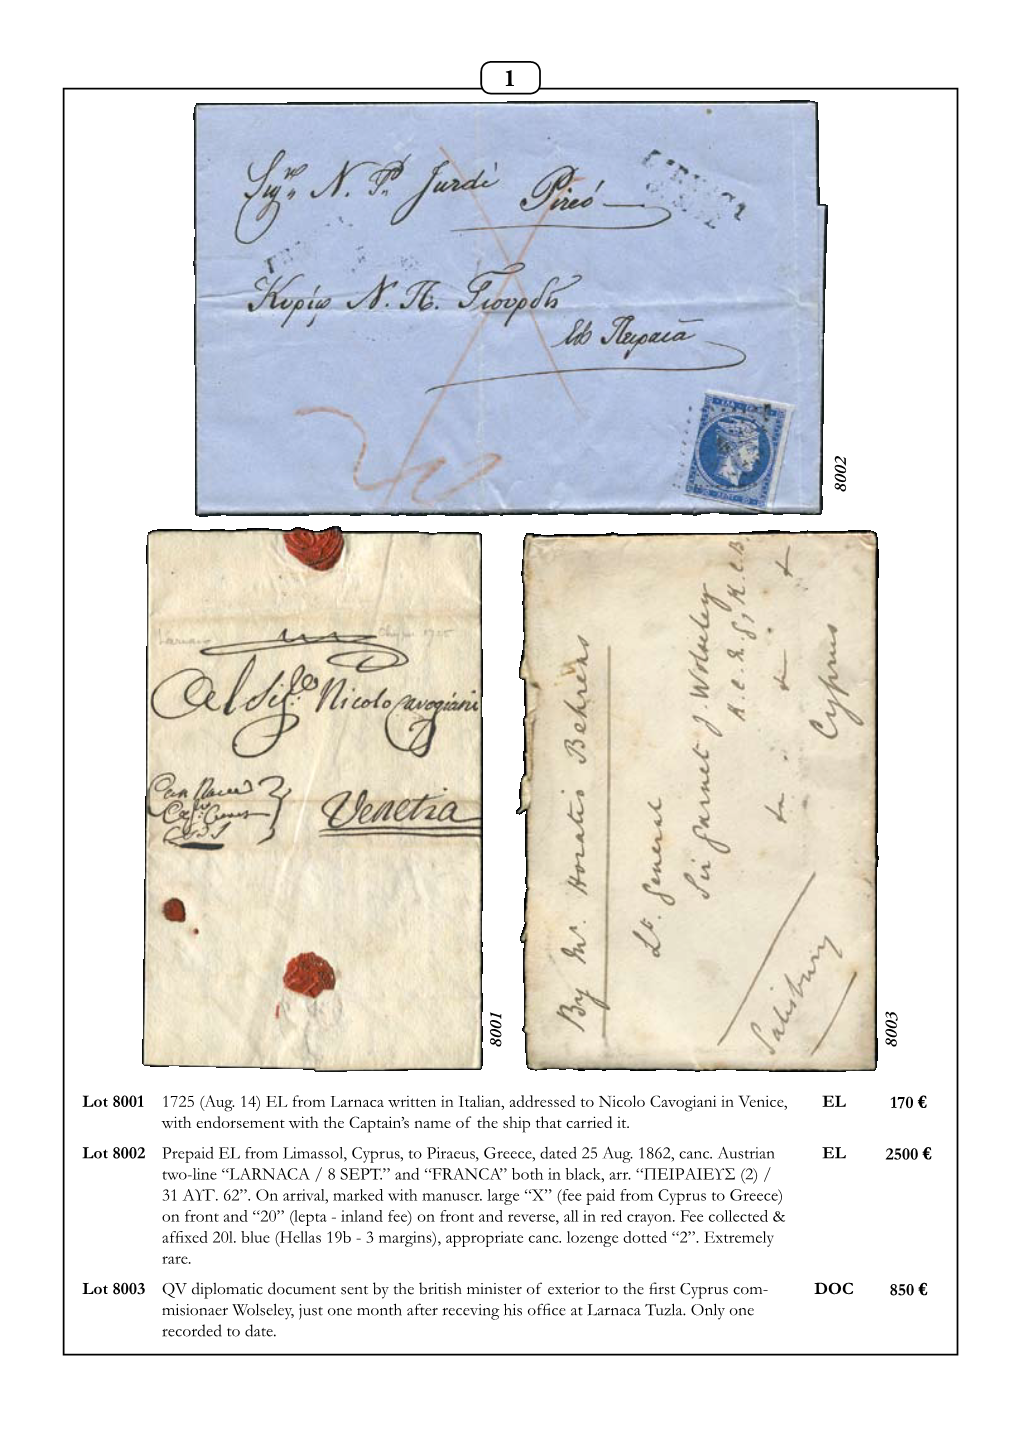 1
Sigr N. Pd Jurdi Pireó
LARNACA
Κυρίῳ Ν. Π. Γιουρδῆ
Πειραιᾶ
20
8002
Larnaca
Al Sigre Nicolo Cavogiani
Venetia
8001
By Mr. Horatio Behrens
Lt. General
Sir Garnet J. Wolseley
K.C.B.
Cyprus
Salisbury
8003
Lot 8001 1725 (Aug. 14) EL from Larnaca written in Italian, addressed to Nicolo Cavogiani in Venice, EL 170 €
with endorsement with the Captain’s name of the ship that carried it.
Lot 8002 Prepaid EL from Limassol, Cyprus, to Piraeus, Greece, dated 25 Aug. 1862, canc. Austrian EL 2500 €
two-line “LARNACA / 8 SEPT.” and “FRANCA” both in black, arr. “ΠΕΙΡΑΙΕΥΣ (2) /
31 ΑΥΓ. 62”. On arrival, marked with manuscr. large “X” (fee paid from Cyprus to Greece)
on front and “20” (lepta - inland fee) on front and reverse, all in red crayon. Fee collected &
affixed 20l. blue (Hellas 19b - 3 margins), appropriate canc. lozenge dotted “2”. Extremely
rare.
Lot 8003 QV diplomatic document sent by the british minister of exterior to the first Cyprus com-
DOC 850 €
misionaer Wolseley, just one month after receving his office at Larnaca Tuzla. Only one
recorded to date.